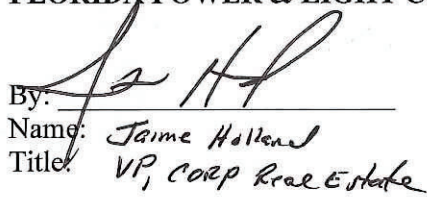 FLORIDA POWER & LIGHT C
By:
Name: Jaime Holland
Title: VP, CORP Real Estate